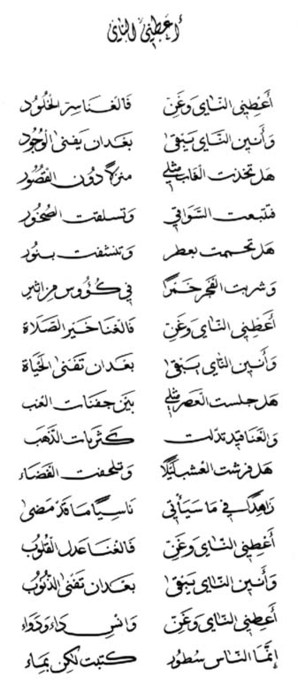 أعطني الناي
أعطني الناي وغن فالغنا سر الخلود
وأنين الناي يبقى بعد ان يفنى الوجود
هل تخذت الغاب مثلي منزلاً دون القصور
فتتبعت السواقي وتسلقت الصخور
هل تحممت بعطر وتنشفت بنور
وشربت الفجر خمراً في كؤوس من اثير
أعطني الناي وغن فالغنا خير الصلاة
وأنين الناي يبقى بعد ان تفنى الحياة
هل جلست العصر مثلي بين جفنات العنب
والعناقيد تدلت كثريات الذهب
هل فرشت العشب ليلاً وتلحفت الفضاء
زاهداً في ما سيأتي ناسياً ما قد مضى
أعطني الناي وغن فالغنا عدل القلوب
وأنين الناي يبقى بعد ان تفنى الذنوب
أعطني الناي وغن وانس داء ودواء
إنما الناس سطور كتبت لكن بماء